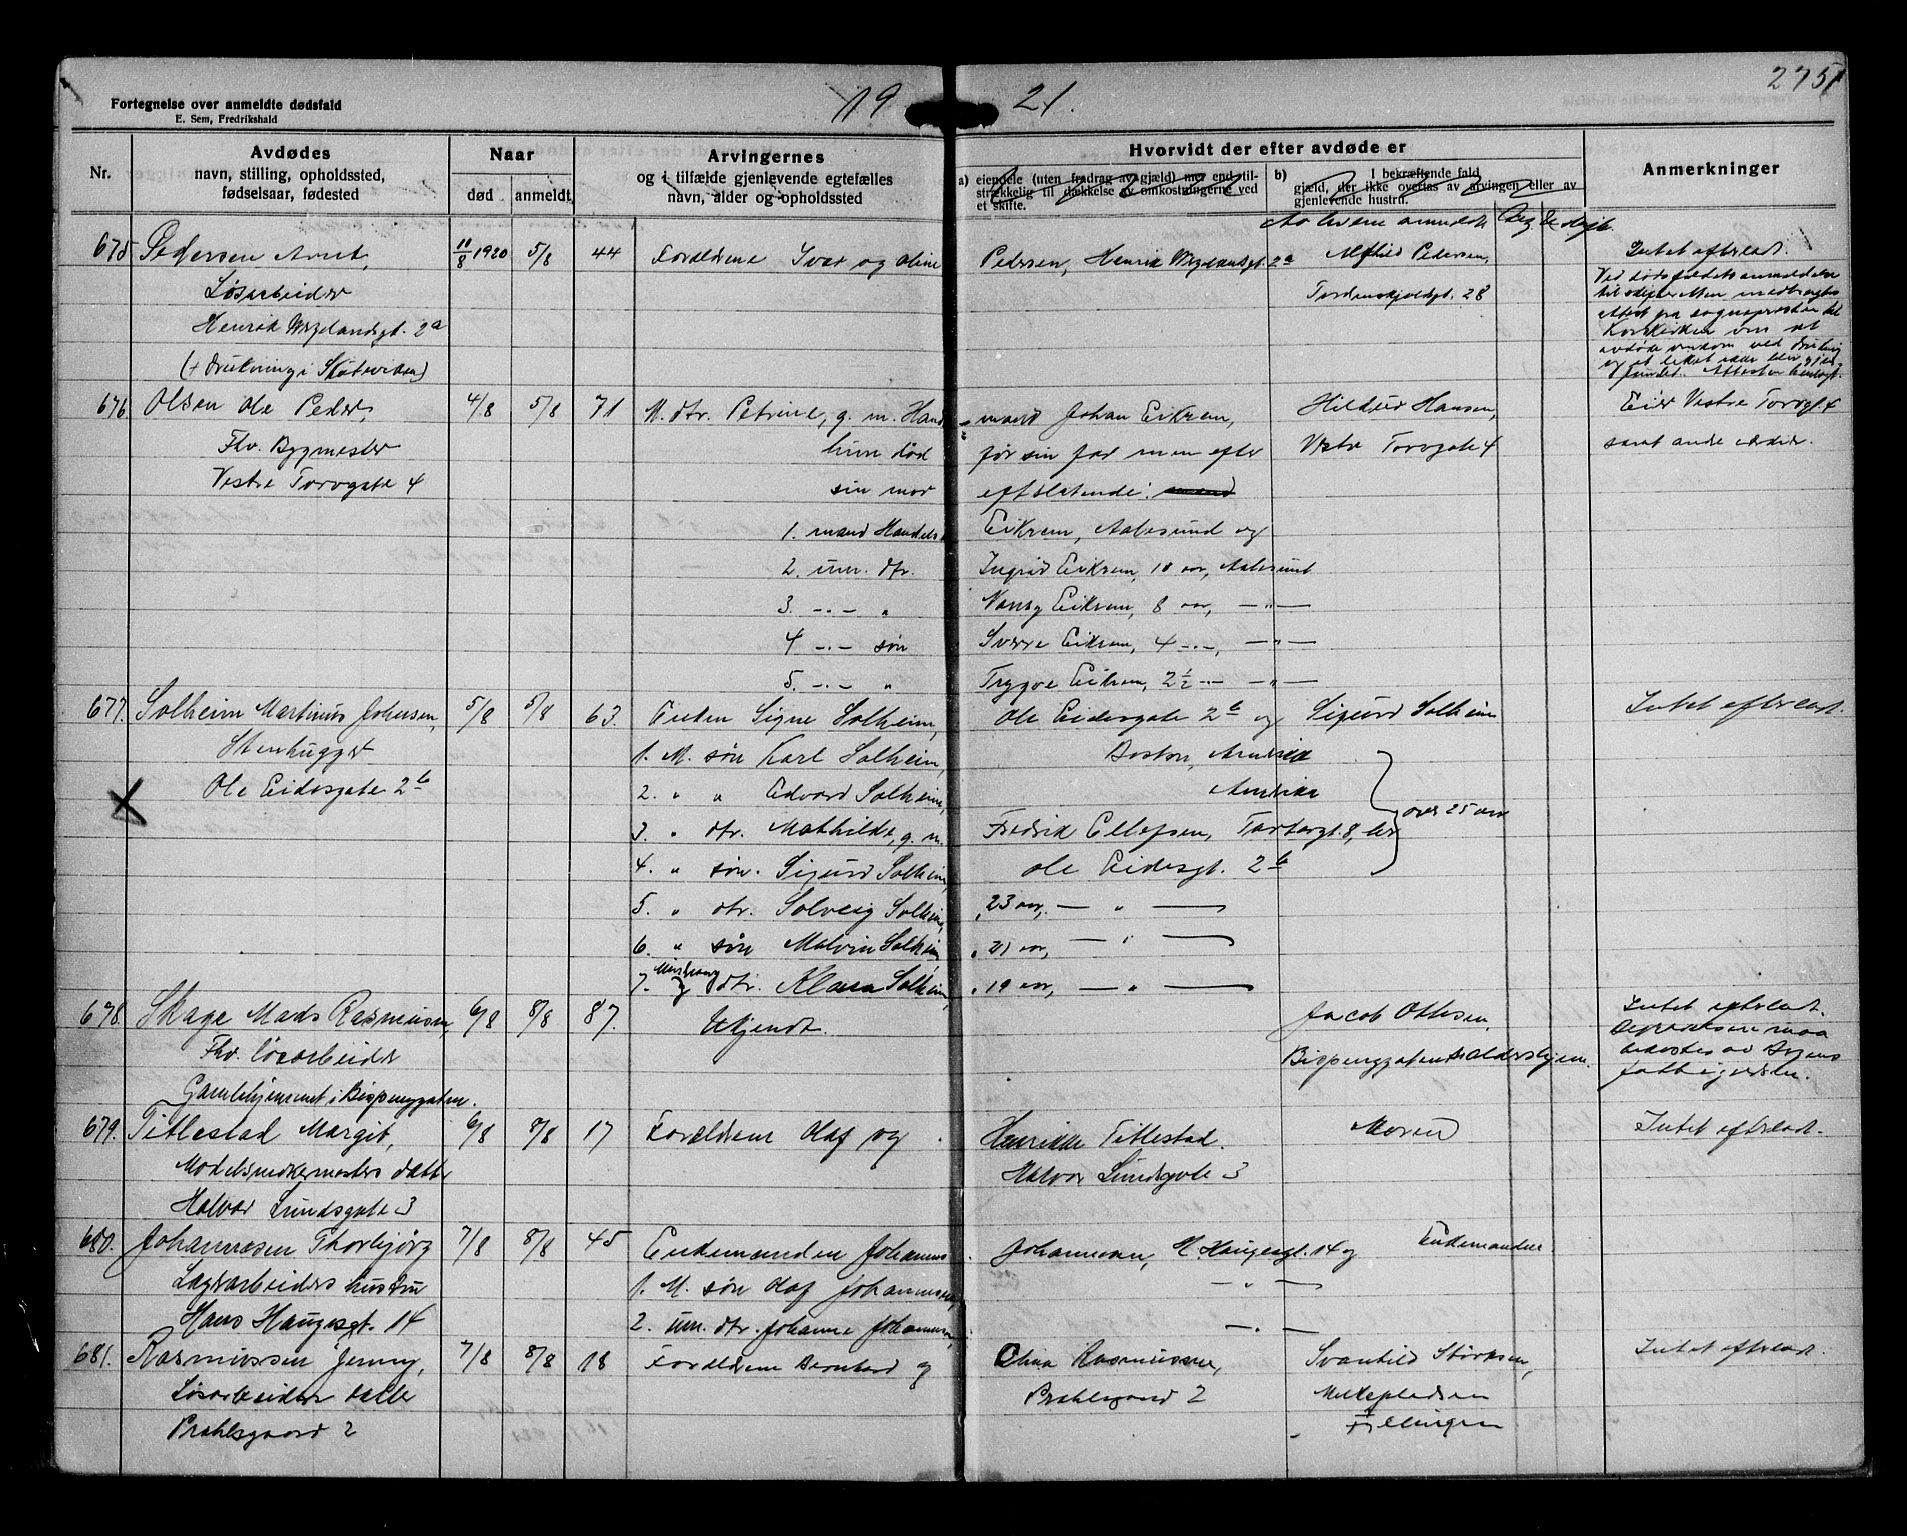 Fortegnelse over anmeldte dødsfald
E. Sem, Fredrikshald
19 21.
2751
Nr.
Avdødes
navn, stilling, opholdssted,
fødselsaar, fødested
Naar
død
anmeldt
Arvingernes
og i tilfælde gjenlevende egtefælles
navn, alder og opholdssted
Hvorvidt der efter avdøde er
a) eiendele (uten fradrag av gjæld) mer end til-
strækkelig til dækkelse av omkostningerne ved
et skifte.
b) I bekræftende fald
gjæld, der ikke overtas av arvingen eller av
gjenlevende hustru.
Anmerkninger
Av hvem anmeldt
675 Pedersen Arnt, 10/8 1920 5/8 44 Forældrene Ivar og Oline Pedersen, Henrik Wergelandsgt. 2a Alfhild Pedersen, Intet efterladt.
Løsarbeider Tordenskjoldsgt. 28 Ved dødsfaldets anmeldelse
Henrik Wergelandsgt. 2a til skifteretten medbragtes
attest fra sogneprosten til
Korskirken om at
(+ Drukning i Skuteviken) avdøde omkom ved drukning
og at liket ikke blev gjen-
fundet. Attesten henlagt.
676 Olsen Ole Peder, 4/8 5/8 71 M. dtr. Petrine, g. m. Hand mand Johan Eikrem, Hildur Hansen, Eier Vestre Torvgt. 4
Fhv. Bygmester hun død før sin far men efter Vestre Torvgate 4 samt andre eiendeler.
Vestre Torvgate 4 sin mor efterlatende: mand
1. mand Handels Eikrem, Aalesund og
2. um. dtr. Ingrid Eikrem, 10 aar, Aalesund
3. -.- " Nancy Eikrem, 8 aar, — " —
4 -.- søn Sverre Eikrem, 4 -.-, — " —
5. -.- " Trygve Eikrem, 2½ -.- — " —
677. Solheim Martinus Johnsen, 5/8 5/8 63. Enken Signe Solheim, Ole Eidesgate 2b og Sigurd Solheim Intet efterladt.
Stenhugger 1. M. søn Karl Solheim, Boston, Amerika
Ole Eidesgate 2b 2. " " Edvard Solheim, Amerika
3. " dtr. Mathilde, g. m. Fredrik Ellefsen, Tartargt. 8, her over 25 aar
4. " søn. Sigurd Solheim, Ole Eidesgt. 2b
5. " dtr. Solveig Solheim, 23 aar, — " —
6. " søn Malvin Solheim, 21 aar, — " —
7. Mindreaarig dtr. Klara Solheim, 19 aar, — " —
678. Skage Mads Rasmussen, 6/8 8/8 87. Ukjendt. Jacob Ottesen, Intet efterladt.
Fhv. løsarbeider Bispenggatens Aldershjem. Begravelsen maa
Gamlehjemmet i Bispenggaten. bekostes av Byens
fattigvæsen.
679. Titlestad Margit, 6/8 8/8 17 Forældrene Olaf og Henrikke Titlestad. Moren Intet efterladt.
Modelsnekkermesters datter Halvor Lundsgate 3
Halvor Lundsgate 3
680. Johannesen Thorbjørg 7/8 8/8 45 Enkemanden Johannes Johannesen, H. Haugesgt. 14 og Enkemanden
Lagerarbeiders hustru 1. M. søn Olaf Johannesen, — " —
Hans Haugesgt. 14 2. um. dtr. Johanne Johannesen, — " —
681. Rasmussen Jenny, 7/8 8/8 18 Forældrene Bernhard og Olina Rasmussen, Svanhild Størksen, Intet efterladt.
Løsarbeiders datter Prahlsgaard 2 Melkepladsen
Prahlsgaard 2 Fjellingen